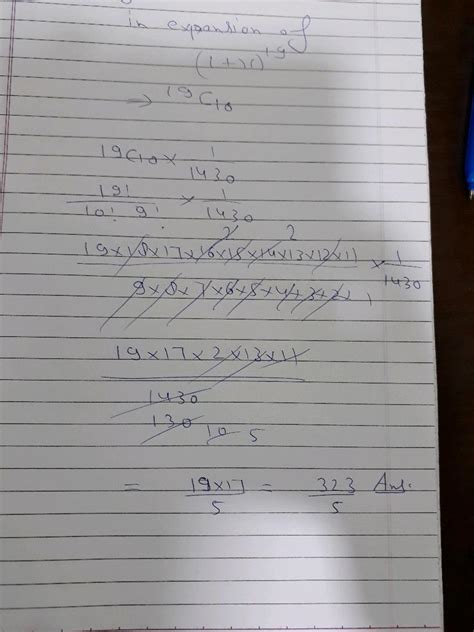 in expansion of
(1+x)^19
→ 19C10
19C10 × 1/1430
19!/10! 9! × 1/1430
2 2
19×18×17×16×15×14×13×12×11/9×8×7×6×5×4×3×2×1 × 1/1430
19×17×2×13×11/1430
130 10 5
= 19×17/5 = 323/5 Ans.